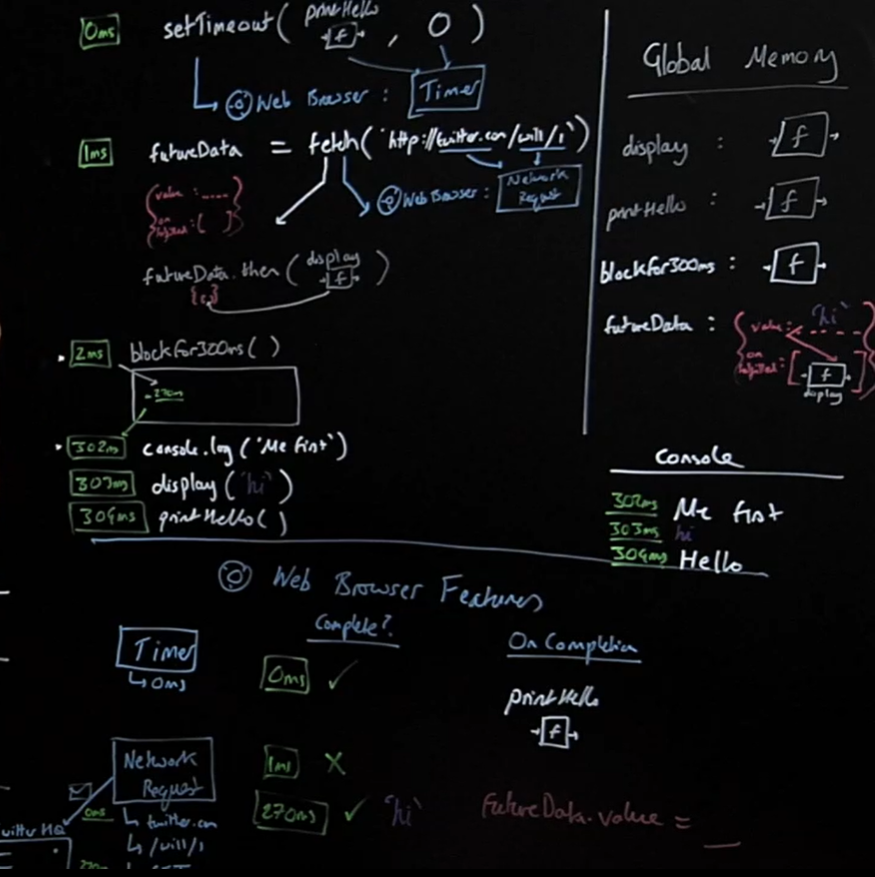 0ms setTimeout( printHello f , 0 )
Web Browser : Timer
1ms futureData = fetch('http://twitter.com/will/1')
Web Browser : Network Request
{ value : .....
on fulfilled : [ ] }
futureData.then( display f )
2ms blockfor300ms( )
270ms
302ms console.log('Me first')
303ms display('hi')
304ms printHello( )
Global Memory
display : f
printHello : f
blockfor300ms : f
futureData : { value : 'hi'
on fulfilled : [ f ] }
display
Console
302ms Me first
303ms hi
304ms Hello
Web Browser Features
Complete?
On Completion
Timer
0ms
0ms ✓
printHello
f
Network Request
1ms X
0ms
270ms ✓ 'hi' futureData.value = __
twitter.com
/will/1